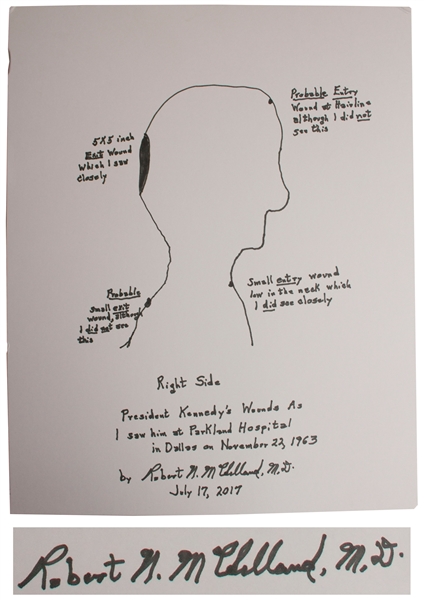 Probable Entry
Wound at Hairline
although I did not
see this
5X5 inch
Exit Wound
Which I saw
closely
Small entry wound
low in the neck which
I did see closely
Probable
small exit
wound, although
I did not see
this
Right Side
President Kennedy's Wounds As
I saw him at Parkland Hospital
in Dallas on November 22, 1963
by Robert N. McClelland, M.D.
July 17, 2017
Robert N. McClelland, M.D.